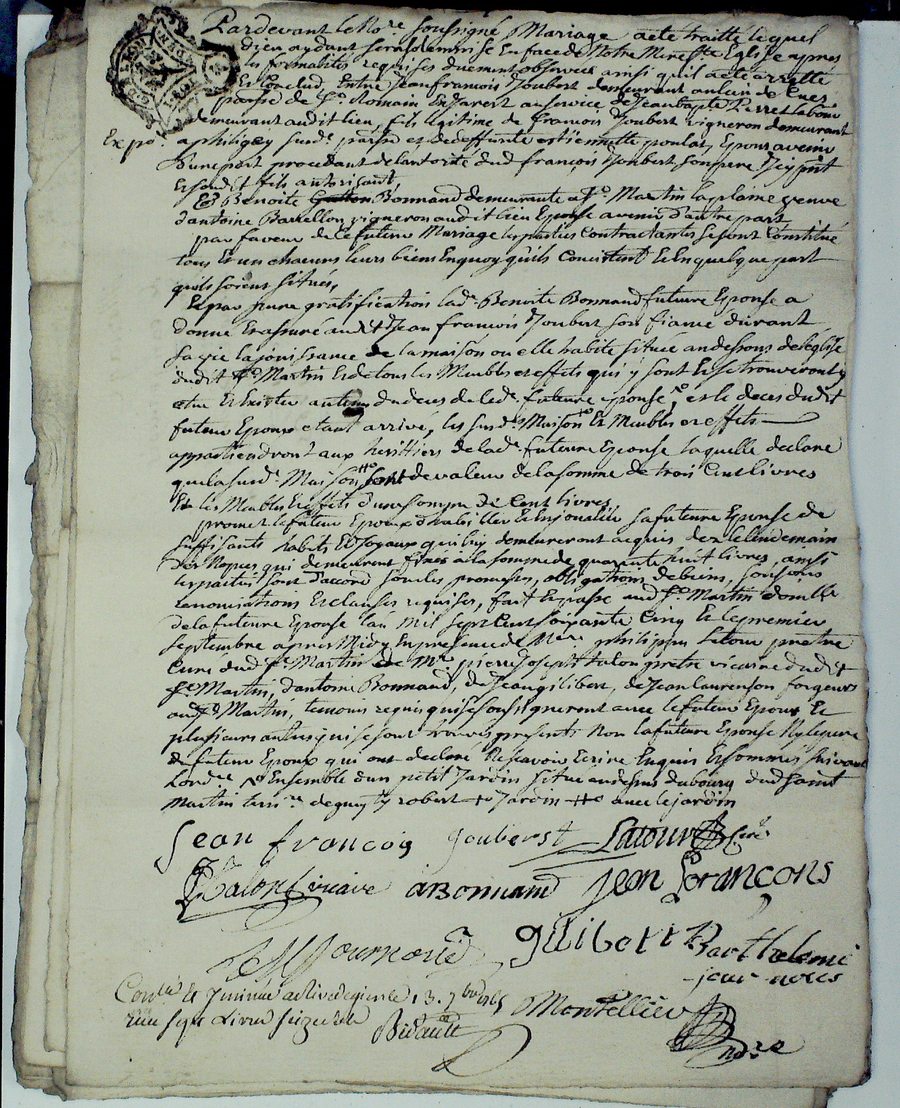 Pardevant le No.re soussigné Mariage a eté traitté lequel
dieu aydant sera solemnisé En face de Notre Mere Ste Eglise apres
les formalités requises duement observées ainsi qu'il a eté arretté
Et Conclud Entre Jean françois Joubert demeurant au lieu de
paroisse de St. Romain En Jarest au service de Jean
demeurant audit lieu, fils legitime de francois Joubert vigneron demeurant
Exp.é a philigey susd. parse et de deffunte estiennette poulat, Epoux avenir
d'une part procedant de l'autorité dud françois Joubert son pere Icy pnt
Et sond. fils autorisant
Et Benoite Bonnand demeurante a St. Martin la plaine veuve
d'antoine Bavellon vigneron audit lieu Epouse avenir d'autre part
par faveur de ce futeur Mariage les parties Contractantes se sont Constitué
tous Et un chacuns leurs biens En quoy qu'ils Concistent Et En quelque part
qu'ils soient situés,
Et par pure gratification lad. Benoite Bonnand future Epouse a
donné Et assuré audit Jean francois Joubert son fiancé durant
sa vie la jouissance de la maison ou elle habite située au dessous de l'eglise
dudit St. Martin Et de tous les Meubles et effets qui y sont Et se trouveront y
etre Et Exister au tems du deces de lad. future Epouse, et le deces dudit
futeur Epoux etant arrivé, les susd. Maison Et Meubles et effets
appartiendront aux herittiers de lad. future Epouse laquelle declare
que la susd. Maison de valeur de la somme de trois Cent livres
Et les Meubles Et effets d'une somme de Cent livres
promet le futeur Epoux d'habiller Et Enjoualler sa future Epouse de
suffisants habits Et Joyaux qui luy demeureront acquis dez le lendemain
des Nopces qui demeurent fixés a la somme de quarente huit livres, ainsi
les parties sont d'accord sous les promesses, obligations de biens, soumissions
renonciations Et clauses requises, fait Et passé aud St. Martin domicille
de la future Epouse l'an Mil sept Cent soixante Cinq Et le premier
septembre apres Midy En presence de M.re philippe Latour pretre
Curé dud St. Martin de M.re pierre Joseph talon pretre vicaire dudit
St. Martin, d'antoine Bonnand, de Jean gilibert, de Jean laurenson forgeurs
aud St. Martin, temoins requis qui se soussigneront avec le futeur Epoux Et
plusieurs autres qui se sont trouvés presents Non la future Epouse Ny le pere
du futeur Epoux qui ont declaré Ne scavoir Ecrire Enquis Et sommés suivant
L'ord.ce Ensemble d'un petit Jardin situé au dessus du bourg dud saint
Martin jardin avec le jardin
jean françoiy joubert Latour Curé
Talon vicaire aBonnand jean françons
gilibert Barthelemi
jean
Con.lé Et Insinué a Rive de gier le 13. 7bre 1765
reçu Bidault
Montellier
no.re